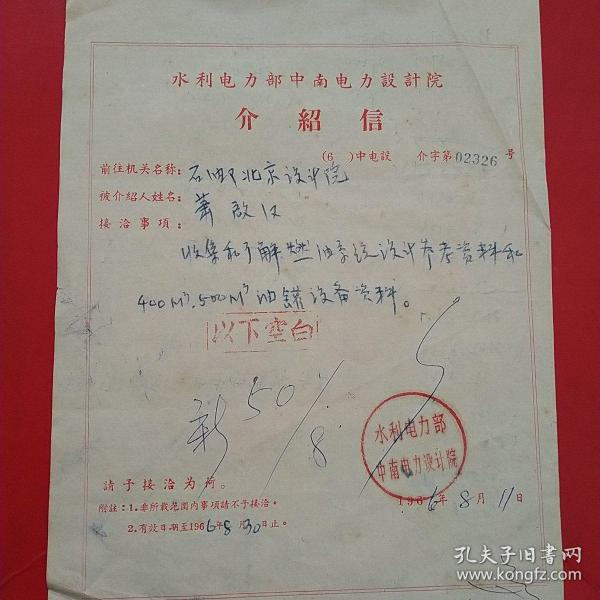 水利电力部中南电力設計院
介紹信
(6 )中电設 介字第02326号
前往机关名称：石油部北京设计院
被介紹人姓名：萧啟汉
接洽事項：
收集和了解燃油系统设计参考资料和
400M³.500M³油罐设备资料。
以下空白
50
8
水利电力部
中南电力设计院
請予接洽为荷。
1966年8月11日
附註：1.非所載范圍内事項請不予接洽。
2.有效日期至1966年8月30日止。
孔夫子旧书网
www.kongfz.com